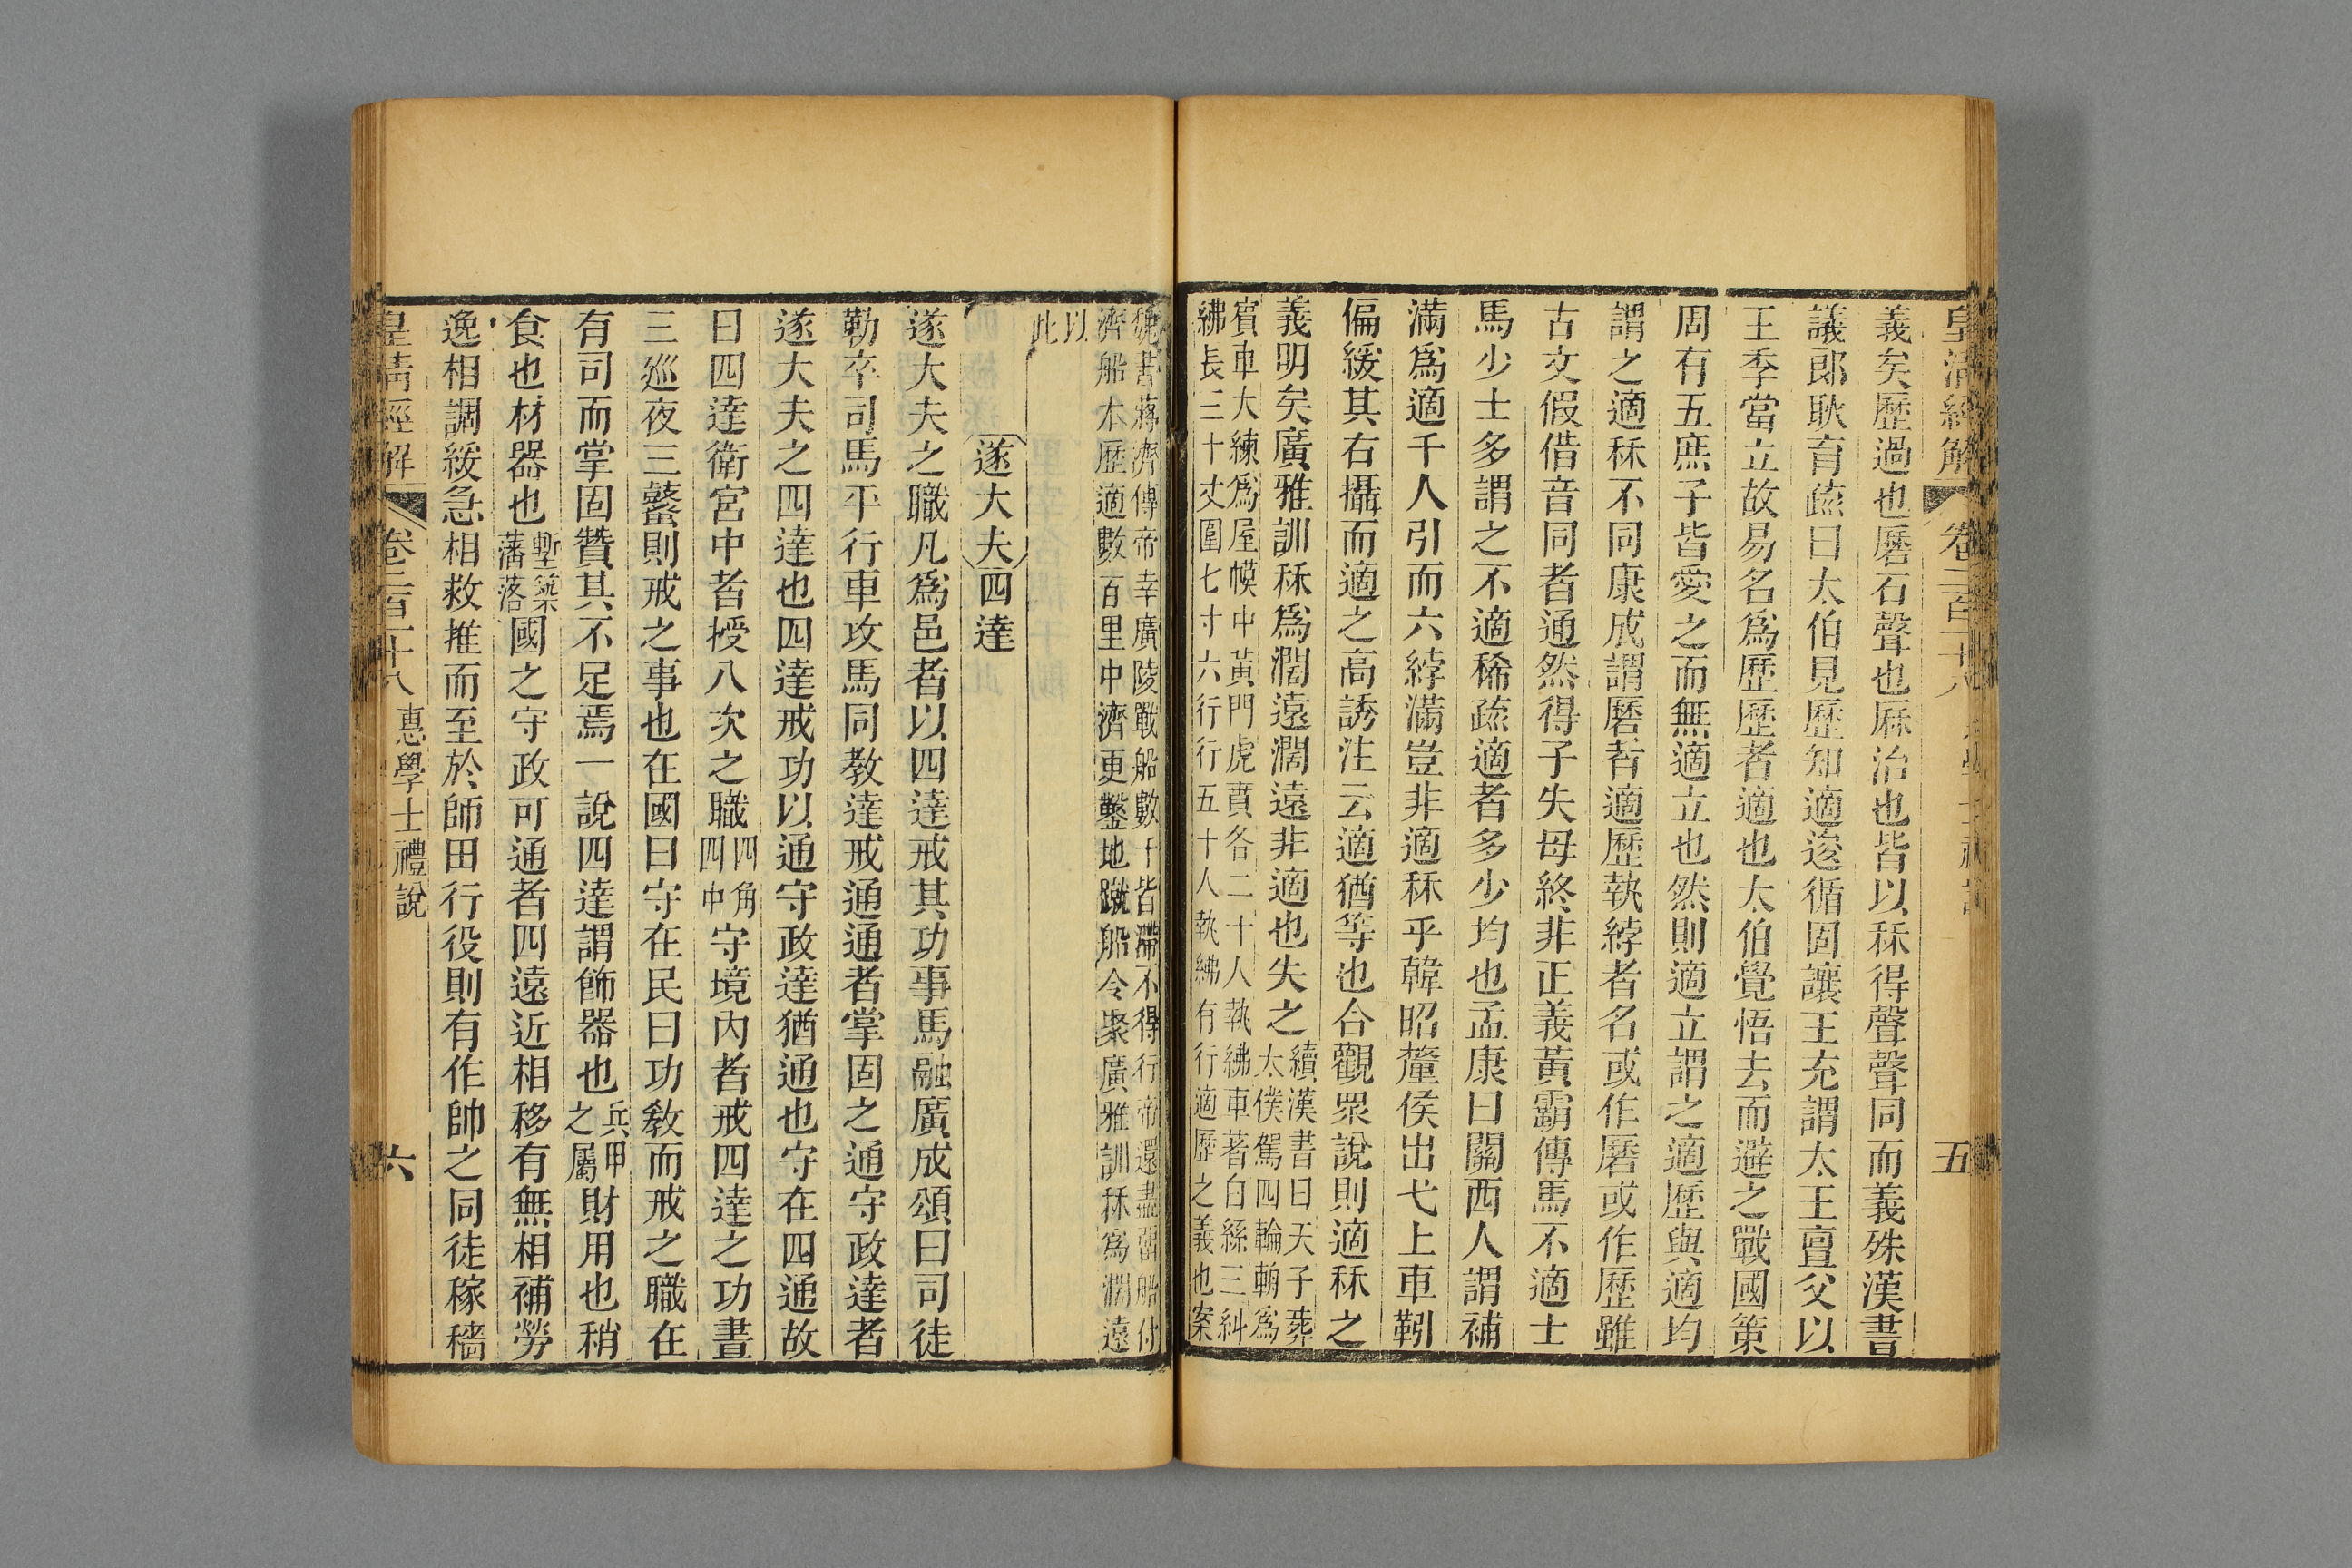 皇清經解 卷二百十八 學士禮說 五
義矣歷過也磿石聲也厤治也皆以秝得聲聲同而義殊漢書
議郎耿育疏曰太伯見歷知適逡循固讓王充謂太王亶父以
王季當立故易名爲歷歷者適也太伯覺悟去而避之戰國策
周有五庶子皆愛之而無適立也然則適立謂之適歷與適均
謂之適秝不同康成謂磿者適歷執綍者名或作磿或作歷雖
古文假借音同者通然得子失母終非正義黃霸傳馬不適士
馬少士多謂之不適稀疏適者多少均也孟康曰關西人謂補
滿爲適千人引而六綍滿豈非適秝乎韓昭釐侯出弋上車靷
偏緩其右攝而適之高誘注云適猶等也合觀眾說則適秝之
義明矣廣雅訓秝爲濶遠濶遠非適也失之續漢書曰天子葬太僕駕四輪輈爲
賓車大練爲屋幙中黃門虎賁各二十人執紼車著白絲三糾
紼長三十丈圍七寸六行行五十人執紼有行適歷之義也案
魏書蔣濟傳帝幸廣陵戰船數千皆滯不得行帝還盡留船付
濟船本歷適數百里中濟更鑿地蹴船令聚廣雅訓秝爲濶遠
以此
遂大夫四達
遂大夫之職凡爲邑者以四達戒其功事馬融廣成頌曰司徒
勒卒司馬平行車攻馬同教達戒通通者掌固之通守政達者
遂大夫之四達也四達戒功以通守政達猶通也守在四通故
曰四達衛宮中者授八次之職四角四中守境內者戒四達之功晝
三廵夜三鼜則戒之事也在國曰守在民曰功敎而戒之職在
有司而掌固贊其不足焉一說四達謂飾器也兵甲之屬財用也稍
食也材器也塹築藩落國之守政可通者四遠近相移有無相補勞
逸相調緩急相救推而至於師田行役則有作帥之同徒稼穡
皇清經解 卷二百十八 惠學士禮說 六